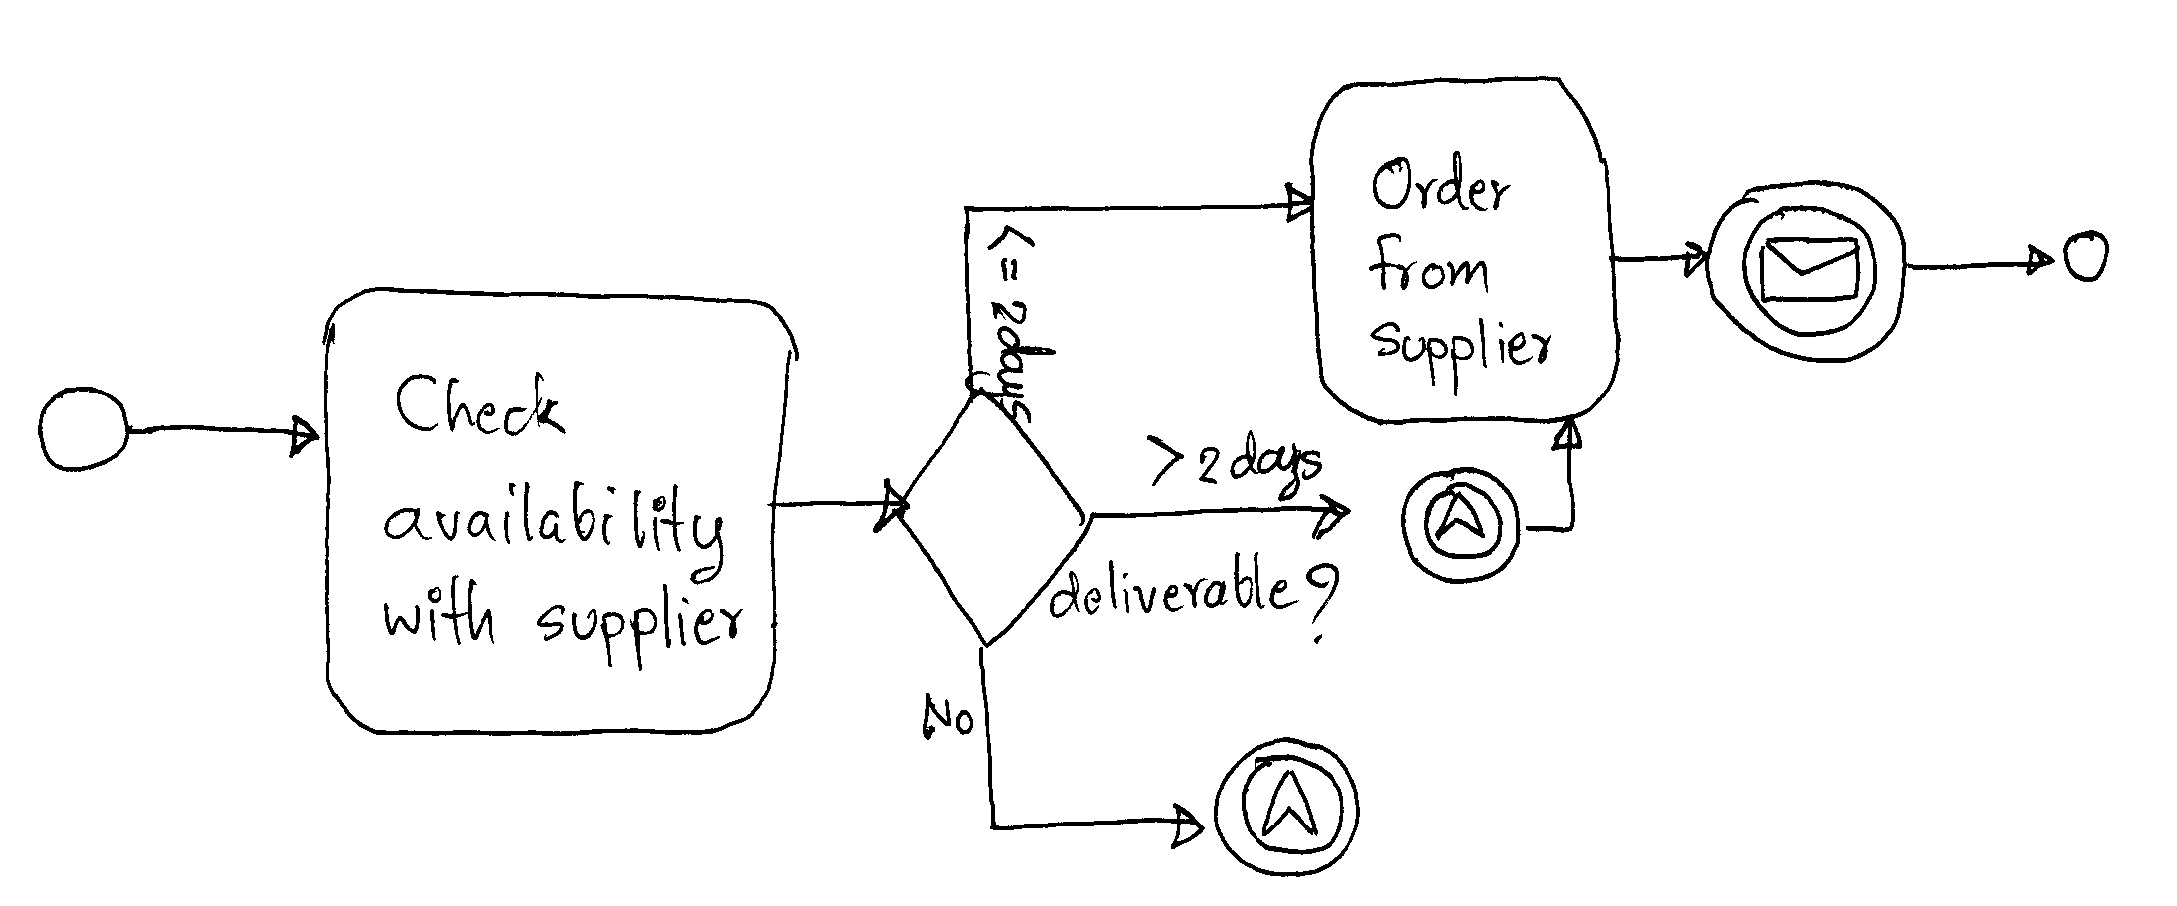 Check
availability
with supplier
<= 2days
> 2 days
deliverable?
No
Order
from
supplier